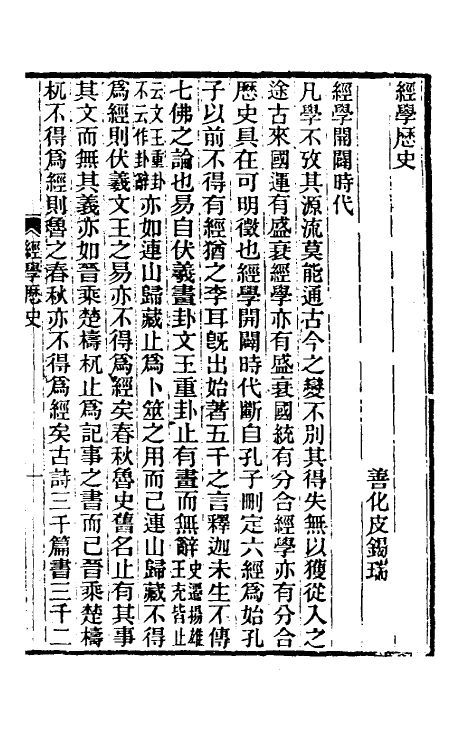 經學歷史
善化皮錫瑞
經學開闢時代
凡學不攷其源流莫能通古今之變不別其得失無以獲從入之
途古來國運有盛衰經學亦有盛衰國統有分合經學亦有分合
歷史具在可明徵也經學開闢時代斷自孔子刪定六經爲始孔
子以前不得有經猶之李耳旣出始著五千之言釋迦未生不傳
七佛之論也易自伏羲畫卦文王重卦止有畫而無辭史遷揚雄王充皆止
云文王重卦不云作卦辭亦如連山歸藏止爲卜筮之用而已連山歸藏不得
爲經則伏羲文王之易亦不得爲經矣春秋魯史舊名止有其事
其文而無其義亦如晉乘楚檮杌止爲記事之書而已晉乘楚檮
杌不得爲經則魯之春秋亦不得爲經矣古詩三千篇書三千二
經學歷史
一